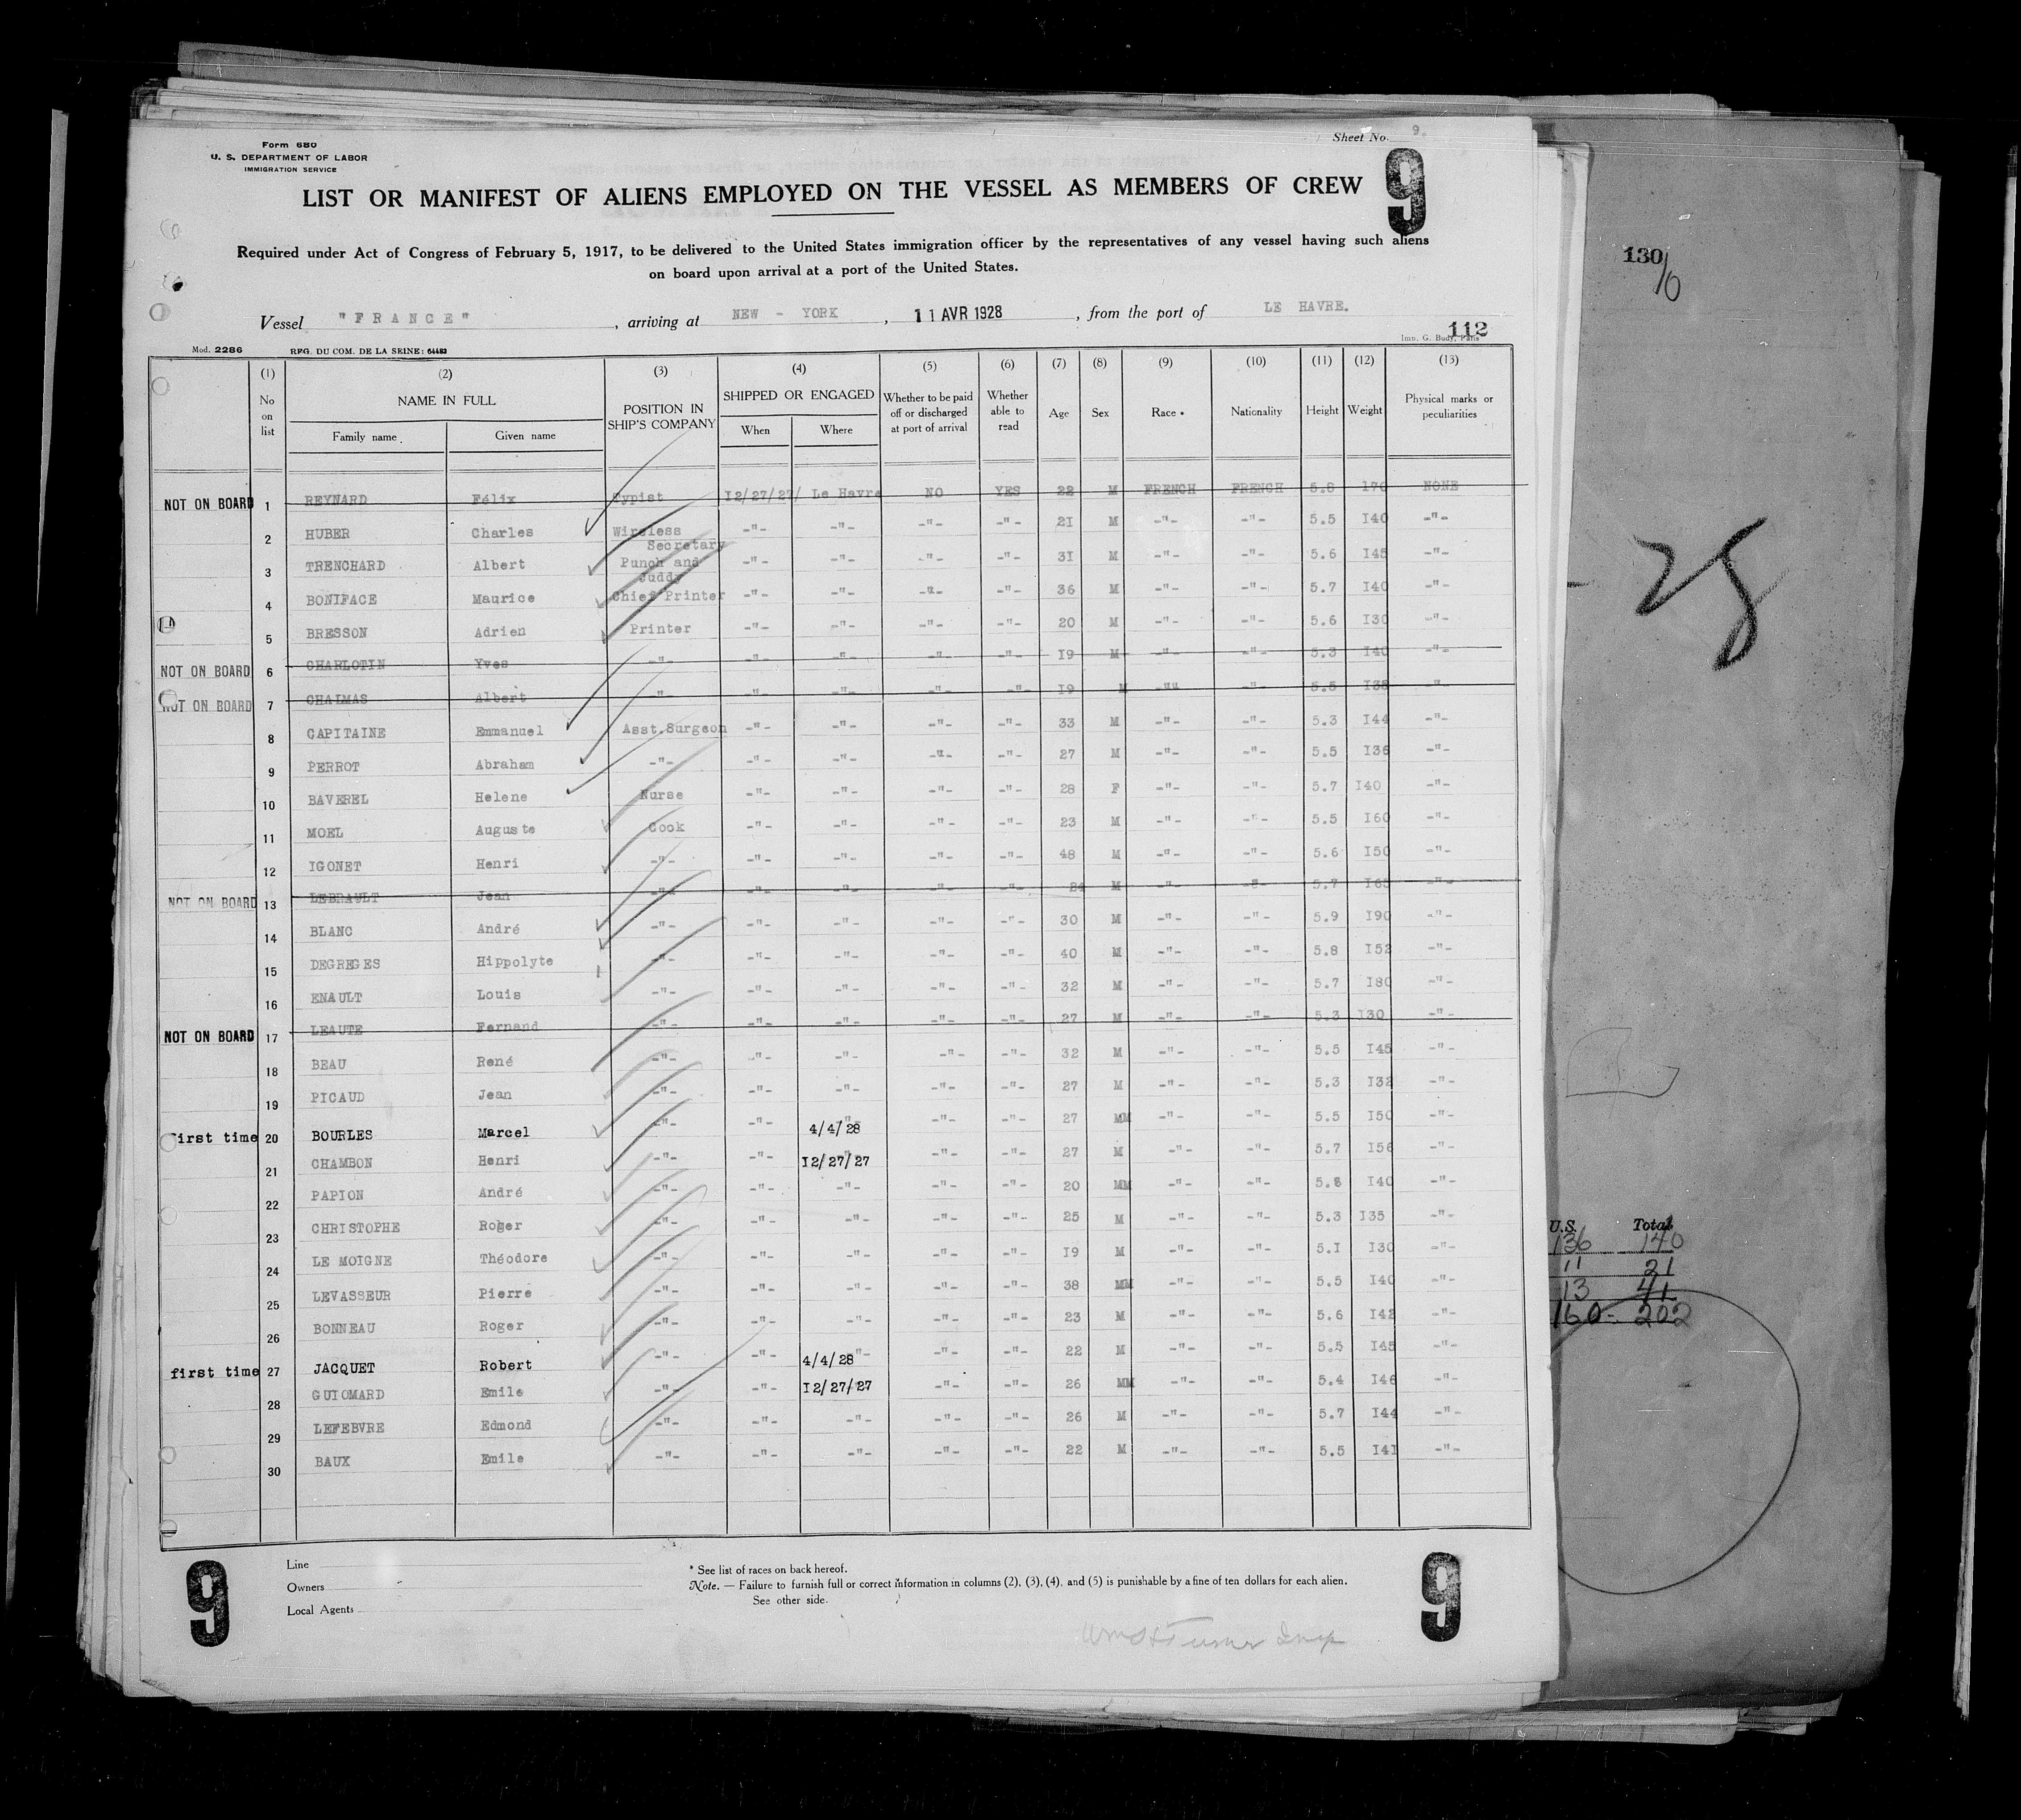 Sheet No. 9.
Form 680
U. S. DEPARTMENT OF LABOR
IMMIGRATION SERVICE
9
LIST OR MANIFEST OF ALIENS EMPLOYED ON THE VESSEL AS MEMBERS OF CREW
Required under Act of Congress of February 5, 1917, to be delivered to the United States immigration officer by the representatives of any vessel having such aliens
on board upon arrival at a port of the United States.
Vessel "FRANCE", arriving at NEW - YORK, 11 AVR 1928, from the port of LE HAVRE.
112
Mod. 2286 REG. DU COM. DE LA SEINE: 64483 Imp. G. Budy, Paris
(1) (2) (3) (4) (5) (6) (7) (8) (9) (10) (11) (12) (13)
No on list NAME IN FULL Family name Given name POSITION IN SHIP'S COMPANY SHIPPED OR ENGAGED When Where Whether to be paid off or discharged at port of arrival Whether able to read Age Sex Race * Nationality Height Weight Physical marks or peculiarities
NOT ON BOARD 1 REYNARD Félix Typist 12/27/27/ Le Havre NO YES 22 M FRENCH FRENCH 5.8 170 NONE
2 HUBER Charles Wireless -"- -"- -"- -"- 21 M -"- -"- 5.5 I40 -"-
Secretary
3 TRENCHARD Albert Punch and Juddy -"- -"- -"- -"- 31 M -"- -"- 5.6 I45 -"-
4 BONIFACE Maurice Chief Printer -"- -"- -"- -"- 36 M -"- -"- 5.7 I40 -"-
5 BRESSON Adrien Printer -"- -"- -"- -"- 20 M -"- -"- 5.6 I30 -"-
NOT ON BOARD 6 CHARLOTIN Yves -"- -"- -"- -"- -"- I9 M -"- -"- 5.3 I40 -"-
NOT ON BOARD 7 CHALMAS Albert -"- -"- -"- -"- -"- I9 M -"- -"- 5.5 I35 -"-
8 CAPITAINE Emmanuel Asst.Surgeon -"- -"- -"- -"- 33 M -"- -"- 5.3 I44 -"-
9 PERROT Abraham -"- -"- -"- -"- -"- 27 M -"- -"- 5.5 I36 -"-
10 BAVEREL Helene Nurse -"- -"- -"- -"- 28 F -"- -"- 5.7 I40 -"-
11 MOEL Auguste Cook -"- -"- -"- -"- 23 M -"- -"- 5.5 I60 -"-
12 IGONET Henri -"- -"- -"- -"- -"- 48 M -"- -"- 5.6 I50 -"-
NOT ON BOARD 13 LEBRAULT Jean -"- -"- -"- -"- -"- 24 M -"- -"- 5.7 I65 -"-
14 BLANC André -"- -"- -"- -"- -"- 30 M -"- -"- 5.9 I90 -"-
15 DEGREGES Hippolyte -"- -"- -"- -"- -"- 40 M -"- -"- 5.8 I52 -"-
16 ENAULT Louis -"- -"- -"- -"- -"- 32 M -"- -"- 5.7 I80 -"-
NOT ON BOARD 17 LEAUTE Fernand -"- -"- -"- -"- -"- 27 M -"- -"- 5.3 I30 -"-
18 BEAU René -"- -"- -"- -"- -"- 32 M -"- -"- 5.5 I45 -"-
19 PICAUD Jean -"- -"- -"- -"- -"- 27 M -"- -"- 5.3 I32 -"-
first time 20 BOURLES Marcel -"- -"- 4/4/28 -"- -"- 27 MM -"- -"- 5.5 I50 -"-
21 CHAMBON Henri -"- -"- I2/27/27 -"- -"- 27 M -"- -"- 5.7 I56 -"-
22 PAPION André -"- -"- -"- -"- -"- 20 MM -"- -"- 5.6 I40 -"-
23 CHRISTOPHE Roger -"- -"- -"- -"- -"- 25 M -"- -"- 5.3 I35 -"-
24 LE MOIGNE Théodore -"- -"- -"- -"- -"- I9 M -"- -"- 5.I I30 -"-
25 LEVASSEUR Pierre -"- -"- -"- -"- -"- 38 MM -"- -"- 5.5 I40 -"-
26 BONNEAU Roger -"- -"- -"- -"- -"- 23 M -"- -"- 5.6 I42 -"-
first time 27 JACQUET Robert -"- -"- 4/4/28 -"- -"- -"- 22 M -"- -"- 5.5 I45 -"-
28 GUIOMARD Emile -"- -"- I2/27/27 -"- -"- 26 MM -"- -"- 5.4 I46 -"-
29 LEFEBVRE Edmond -"- -"- -"- -"- -"- 26 M -"- -"- 5.7 I44 -"-
30 BAUX Emile -"- -"- -"- -"- -"- 22 M -"- -"- 5.5 I4I -"-
9
Line
Owners
Local Agents
* See list of races on back hereof.
Note. — Failure to furnish full or correct information in columns (2), (3), (4), and (5) is punishable by a fine of ten dollars for each alien.
See other side.
9
130
28
U.S. Total
136 140
11 21
13 41
160- 202